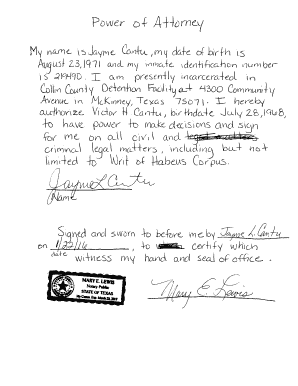 Power of Attorney
My name is Jayme Cantu, my date of birth is
August 23, 1971 and my inmate identification number
is 219490. I am presently incarcerated in
Collin County Detention Facility at 4300 Community
Avenue in McKinney, Texas 75071. I hereby
authorize Victor H. Cantu, birthdate July 28, 1968,
to have power to make decisions and sign
for me on all civil and
criminal legal matters, including but not
limited to Writ of Habeus Corpus.
Jayme L Cantu
Name
Signed and sworn to before me by Jayme L. Cantu
on 1/22/16, to certify which
date witness my hand and seal of office.
MARY E. LEWIS
Notary Public
STATE OF TEXAS
Mary E. Lewis